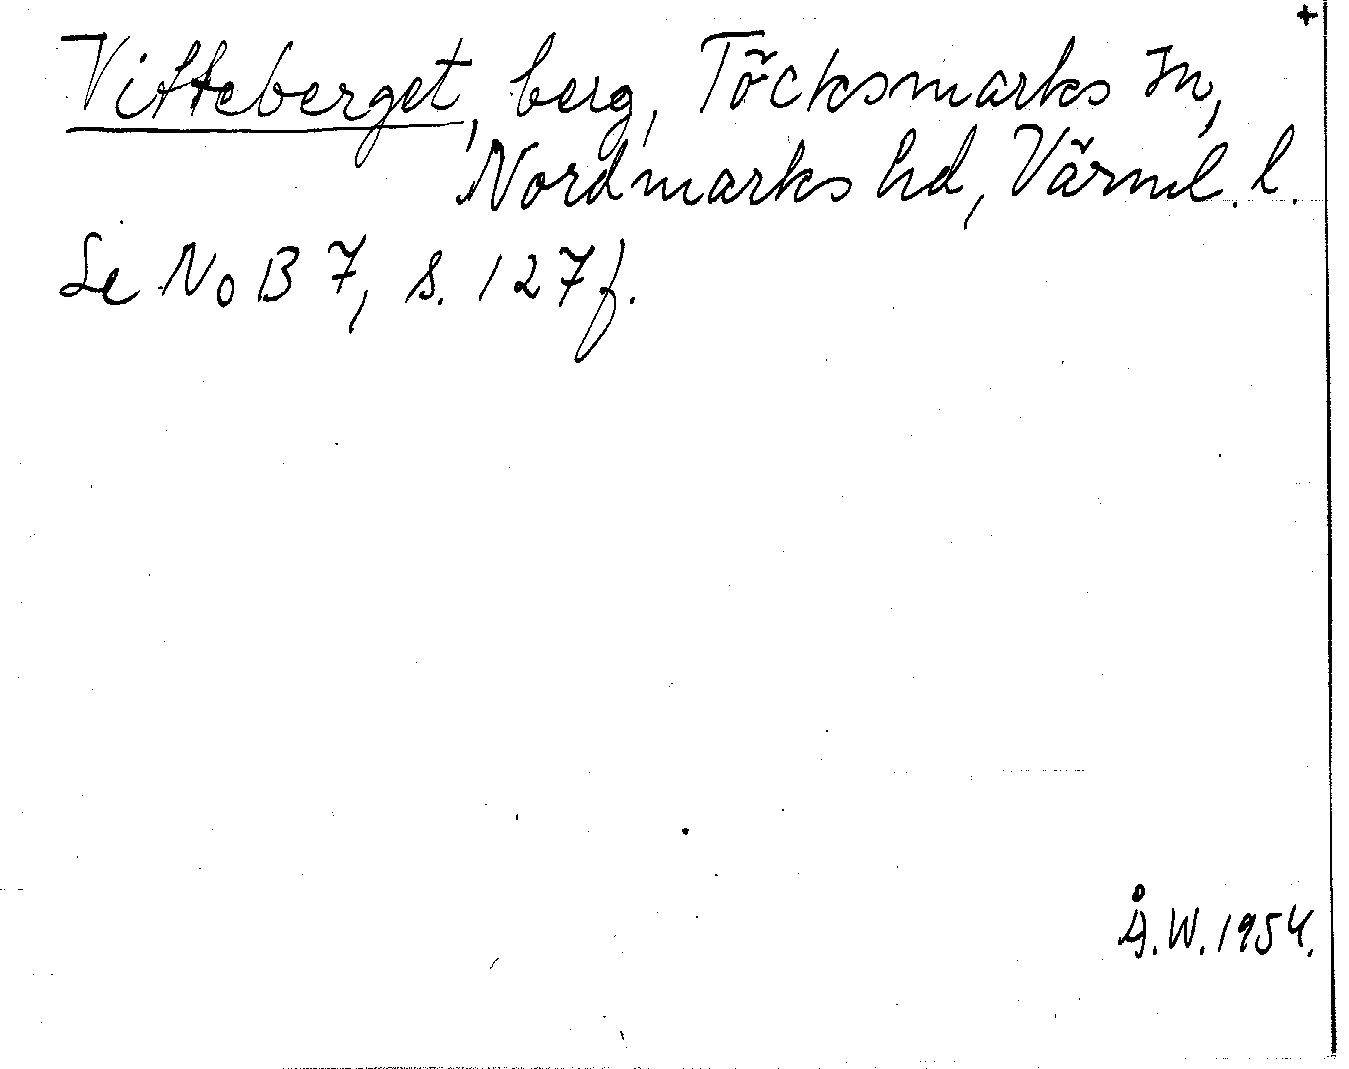 +
Vitteberget, berg, Töcksmarks sn,
Nordmarks hd, Värml. l.
Se NoB 7, s. 127 f.
Å.W. 1954.